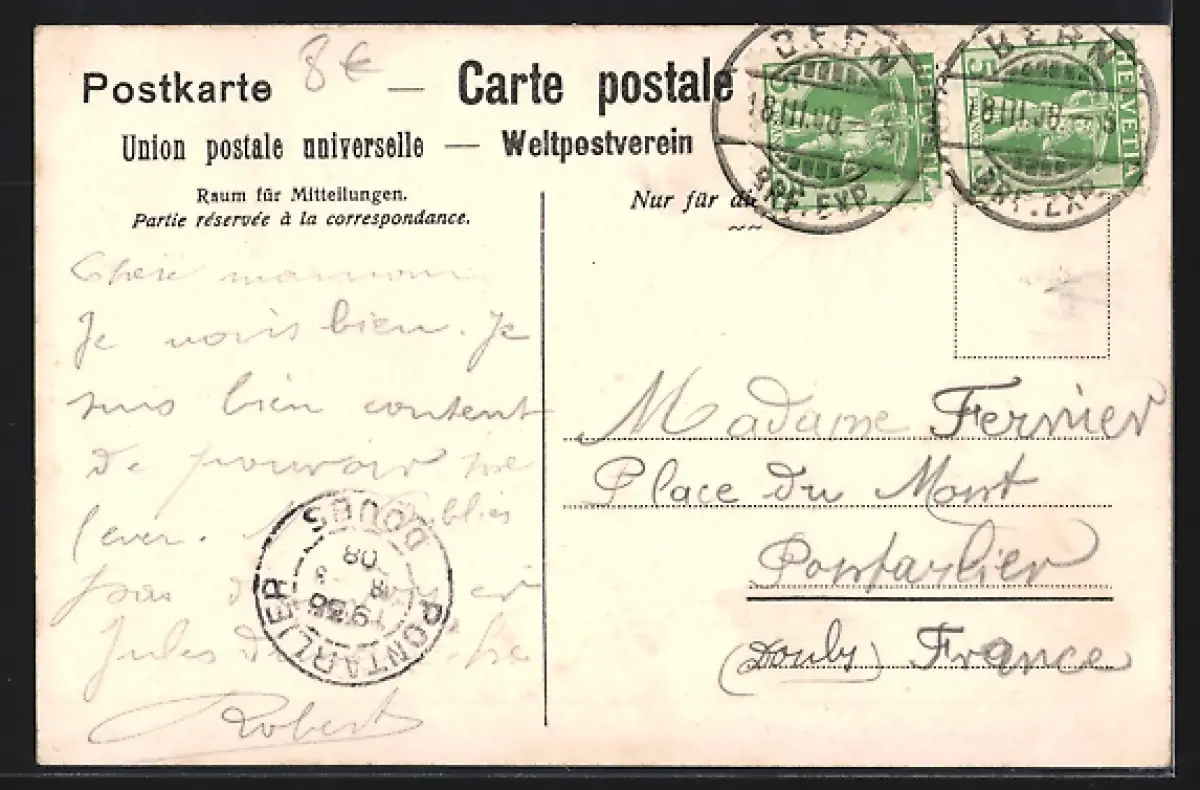 8€
Postkarte — Carte postale
Union postale universelle — Weltpostverein
Raum für Mitteilungen.
Partie réservée à la correspondance.
Nur für die
BERN
18.III.08
BRF.EXP.
HELVETIA
5
BERN
8III.08
BRF.EXP.
HELVETIA
5
Chère maman
Je vais bien. Je
suis bien content
de pouvoir me
lever. oublies
pas
Jules
Robert
PONTARLIER
DOUBS
19
08
Madame Fernier
Place du Mont
Pontarlier
(Doubs) France